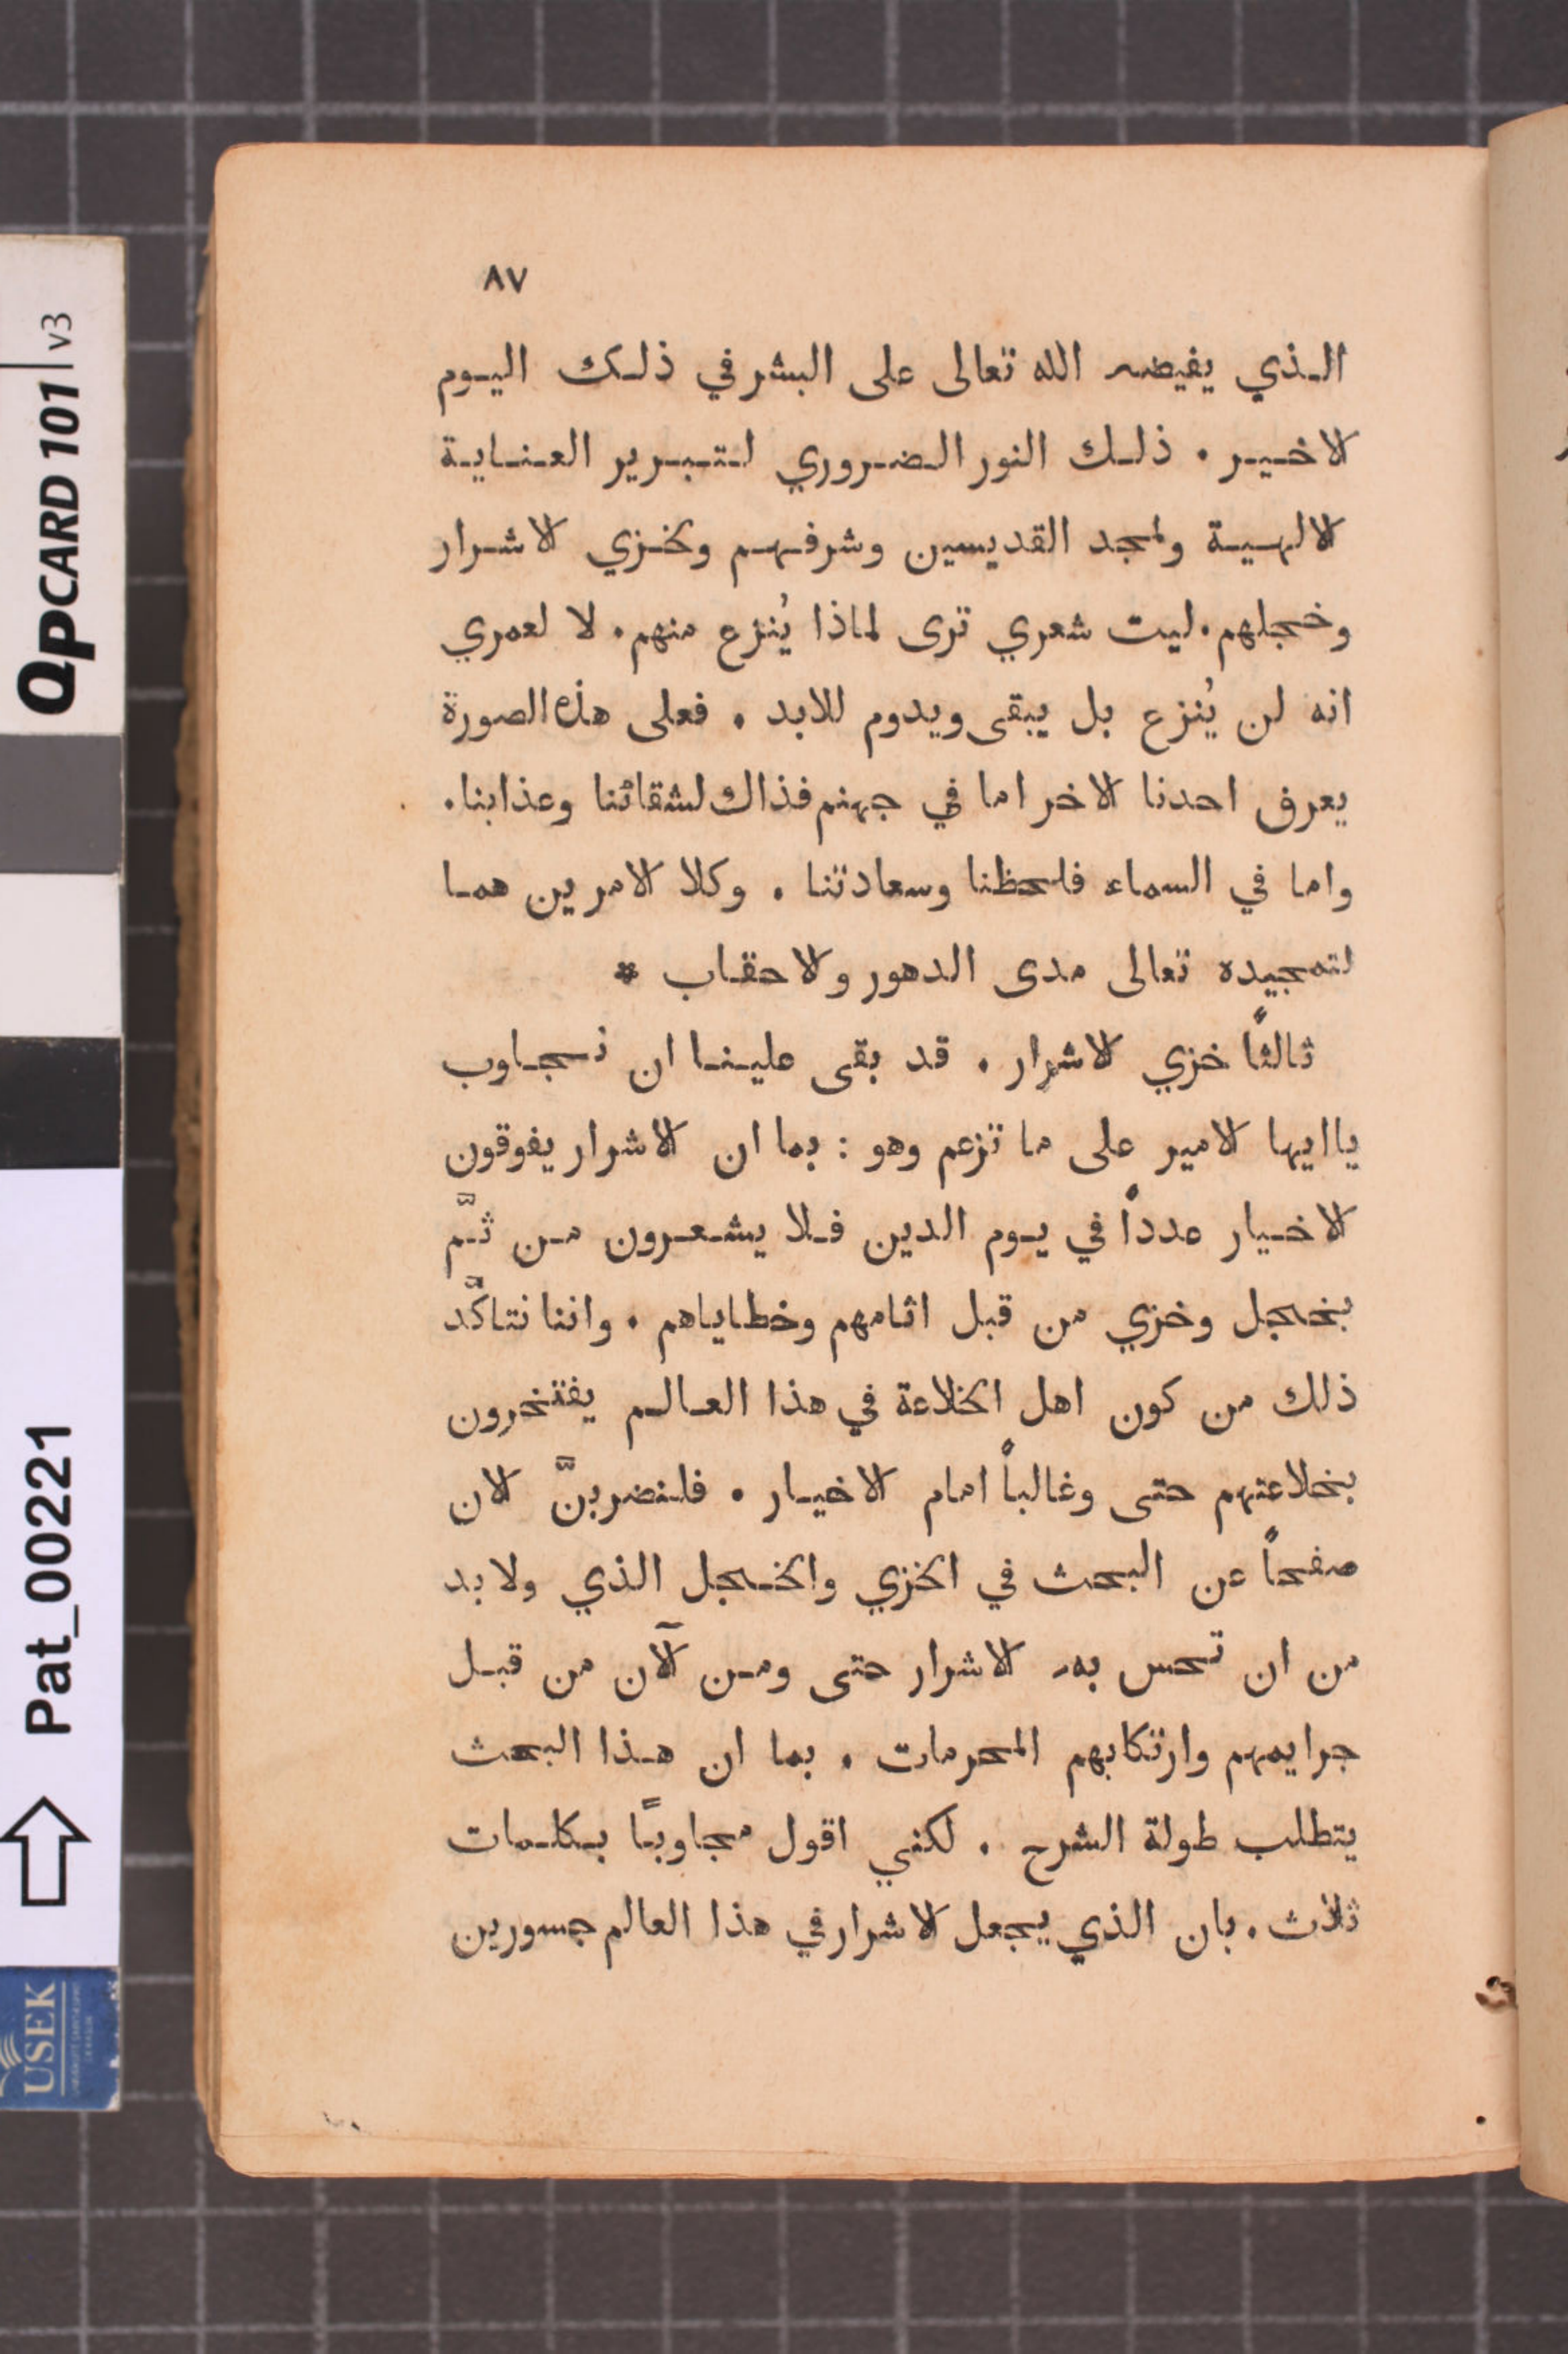 ٨٧
الذي يفيضه الله تعالى على البشر في ذلك اليوم
الاخير . ذلك النور الضروري لتبرير العناية
الالهية ولمجد القديسين وشرفهم وخزي الاشرار
وخجلهم . ليت شعري ترى لماذا يُنزع منهم . لا لعمري
انه لن يُنزع بل يبقى ويدوم للابد . فعلى هذه الصورة
يعرف احدنا الاخر اما في جهنم فذاك لشقائنا وعذابنا .
واما في السماء فلحظنا وسعادتنا . وكلا الامرين هما
لتمجيده تعالى مدى الدهور والاحقاب *
ثالثاً خزي الاشرار . قد بقى علينا ان نجاوب
يا ايها الامير على ما تزعم وهو : بما ان الاشرار يفوقون
الاخيار عدداً في يوم الدين فلا يشعرون من ثَّم
بخجل وخزي من قبل اثامهم وخطاياهم . واننا نتاكَّد
ذلك من كون اهل الخلاعة في هذا العالم يفتخرون
بخلاعتهم حتى وغالباً امام الاخيار . فلنضربنَّ الان
صفحاً عن البحث في الخزي والخجل الذي ولا بد
من ان تحس به الاشرار حتى ومن الآن من قبل
جرايمهم وارتكابهم المحرمات . بما ان هذا البحث
يتطلب طولة الشرح . لكنني اقول مجاوباً بكلمات
ثلاث . بان الذي يجعل الاشرار في هذا العالم جسورين
QPCARD 101 | v3
Pat_00221
USEK